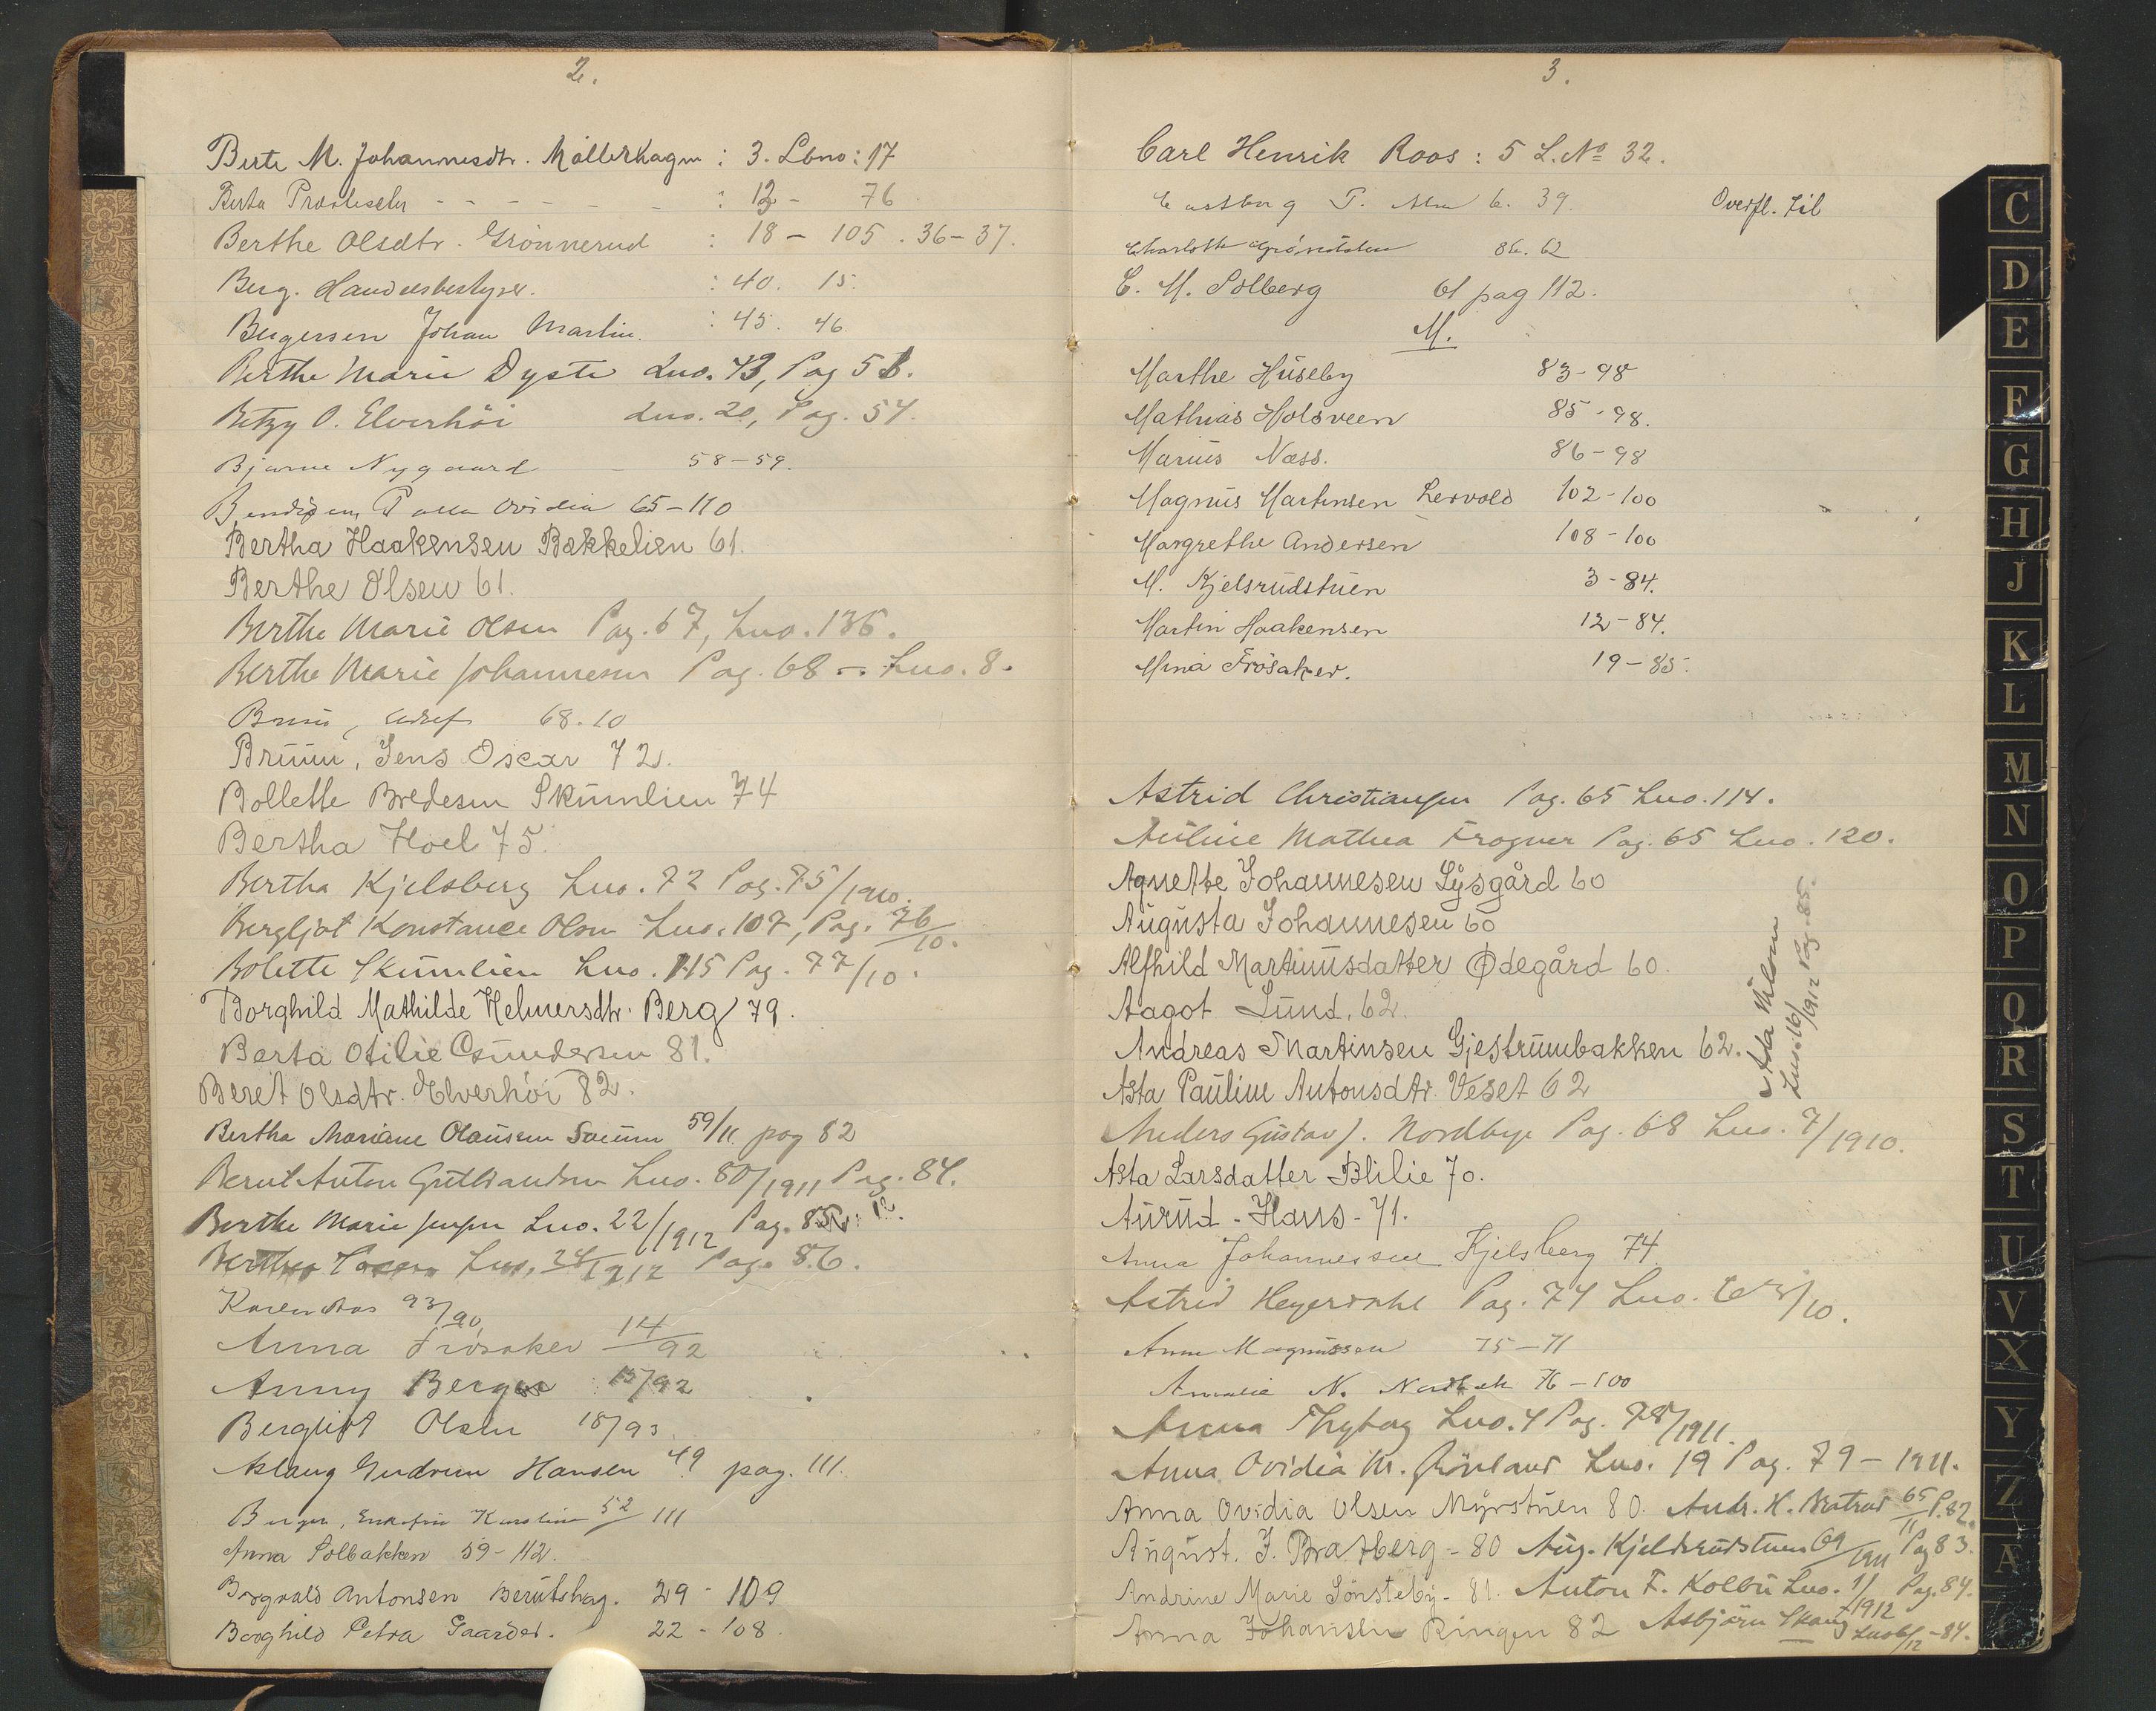 2.
Berte M. Johannesdtr. Möllerhagen : 3. Lbno: 17
Berta Præsteseter - - - - - - : 12 - 76
Berthe Olsdtr. Grönnerud : 18 - 105 . 36-37.
Berg. Handelsbestyrer. : 40. 15.
Bergersen Johan Martin. : 45. 46
Berthe Marie Dyste Lno. 43, Pag 51.
Betzy O. Elverhöi Lno. 20, Pag. 54.
Bjarne Nygaard 58-59.
Ovidia 65-110
Bertha Haakensen Bækkelien 61.
Berthe Olsen 61.
Berthe Marie Olsen Pag. 67, Lno. 136.
Berthe Marie Johannesen Pag. 68 - Lno. 8.
68.10
Bruun, Jens Oscar 72.
Bollette Bredesen Skumlien 74
Bertha Hoel 75.
Bertha Kjelsberg Lno. 72 Pag. 75/1910.
Bergljot Konstance Olsen Lno. 107, Pag. 76/10.
Bolette Skumlien Lno. 115 Pag. 77/10.
Borghild Mathilde Helmersdtr. Berg 79.
Berta Otilie Gundersen 81.
Beret Olsdtr. Elverhöi 82.
Bertha Mariane Olausen 59/11 pag 82
Bernt Anton Gulbrandsen Lno. 80/1911 Pag. 84.
Berthe Marie Jensen Lno. 22/1912 Pag. 85
Lno. 24/1912 Pag. 86.
Karen Aas 93/90.
Anna Frösaker 14/92
Anny Berger 15/92
Bergliot Olsen 18/93
Aslaug Gudrun Hansen 49 pag. 111.
Berger, Karoline 52/111
Anna Solbakken 59-112.
Borgvald Antonsen Berntshag. 29 - 109
Borghild Petra Gaarder. 22 - 108.
3.
Carl Henrik Roos : 5 L. No 32.
6. 39. Overfl. til
Charlotte Gröndalen 86. 62
C. M. Solberg 61 pag 112.
M.
Marthe Huseby 83-98
Mathias Holsveen 85-98.
Marius Næss. 86-98
Magnus Martinsen Lervold 102-100
Margrethe Andersen 108-100
M. Kjelsrudstuen 3-84.
Martin Haakensen 12-84.
Mina Frösaker. 19-85.
Astrid Christiansen Pag. 65 Lno. 114.
Mathea Frogner Pag. 65 Lno. 120.
Agnethe Johannesen Lysgård 60
Augusta Johannesen 60
Alfhild Martinusdatter Ødegård 60.
Aagot Lund. 62.
Andreas Martinsen Gjestrumbakken 62.
Asta Pauline Antonsdtr. Veset 62
Ada Nilsen
Lno. 16/1912 Pag. 85.
Anders Gustav J. Nordbye Pag. 68 Lno. 7/1910.
Asta Larsdatter Blilie 70.
Aurud - Hans - 71.
Anna Johannessen Kjelsberg 74
Astrid Heyerdahl Pag. 74 Lno. /10.
Anne Magnussen 75-71
N. 76-100
Anna Lno. 4 Pag. 78/1911.
Anna Ovidia M. Grönland Lno. 19 Pag. 79 - 1911.
Anna Ovidia Olsen Myrstuen 80. Andr. H. 65/11 P. 82.
August. J. Bratberg - 80 Aug. Kjeldsrudstuen 69/1911 Pag 83.
Andrine Marie Sönsteby - 81. Anton F. Kolbu Lno. 1/1912 Pag. 84.
Anna Johansen Ringen 82 Asbjörn Skaug Lno 6/12 - 84.
C
D
E
F
G
H
J
K
L
M
N
O
P
Q
R
S
T
U
V
X
Y
Z
Æ